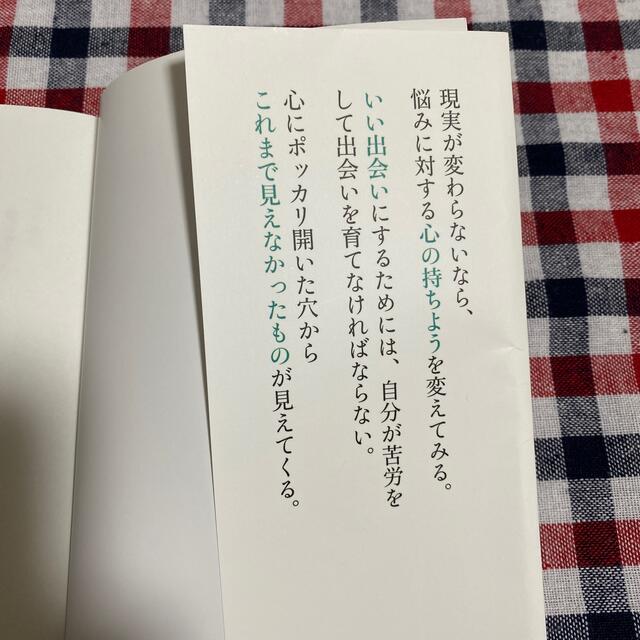 現実が変わらないなら、
悩みに対する心の持ちようを変えてみる。
いい出会いにするためには、自分が苦労を
して出会いを育てなければならない。
心にポッカリ開いた穴から
これまで見えなかったものが見えてくる。